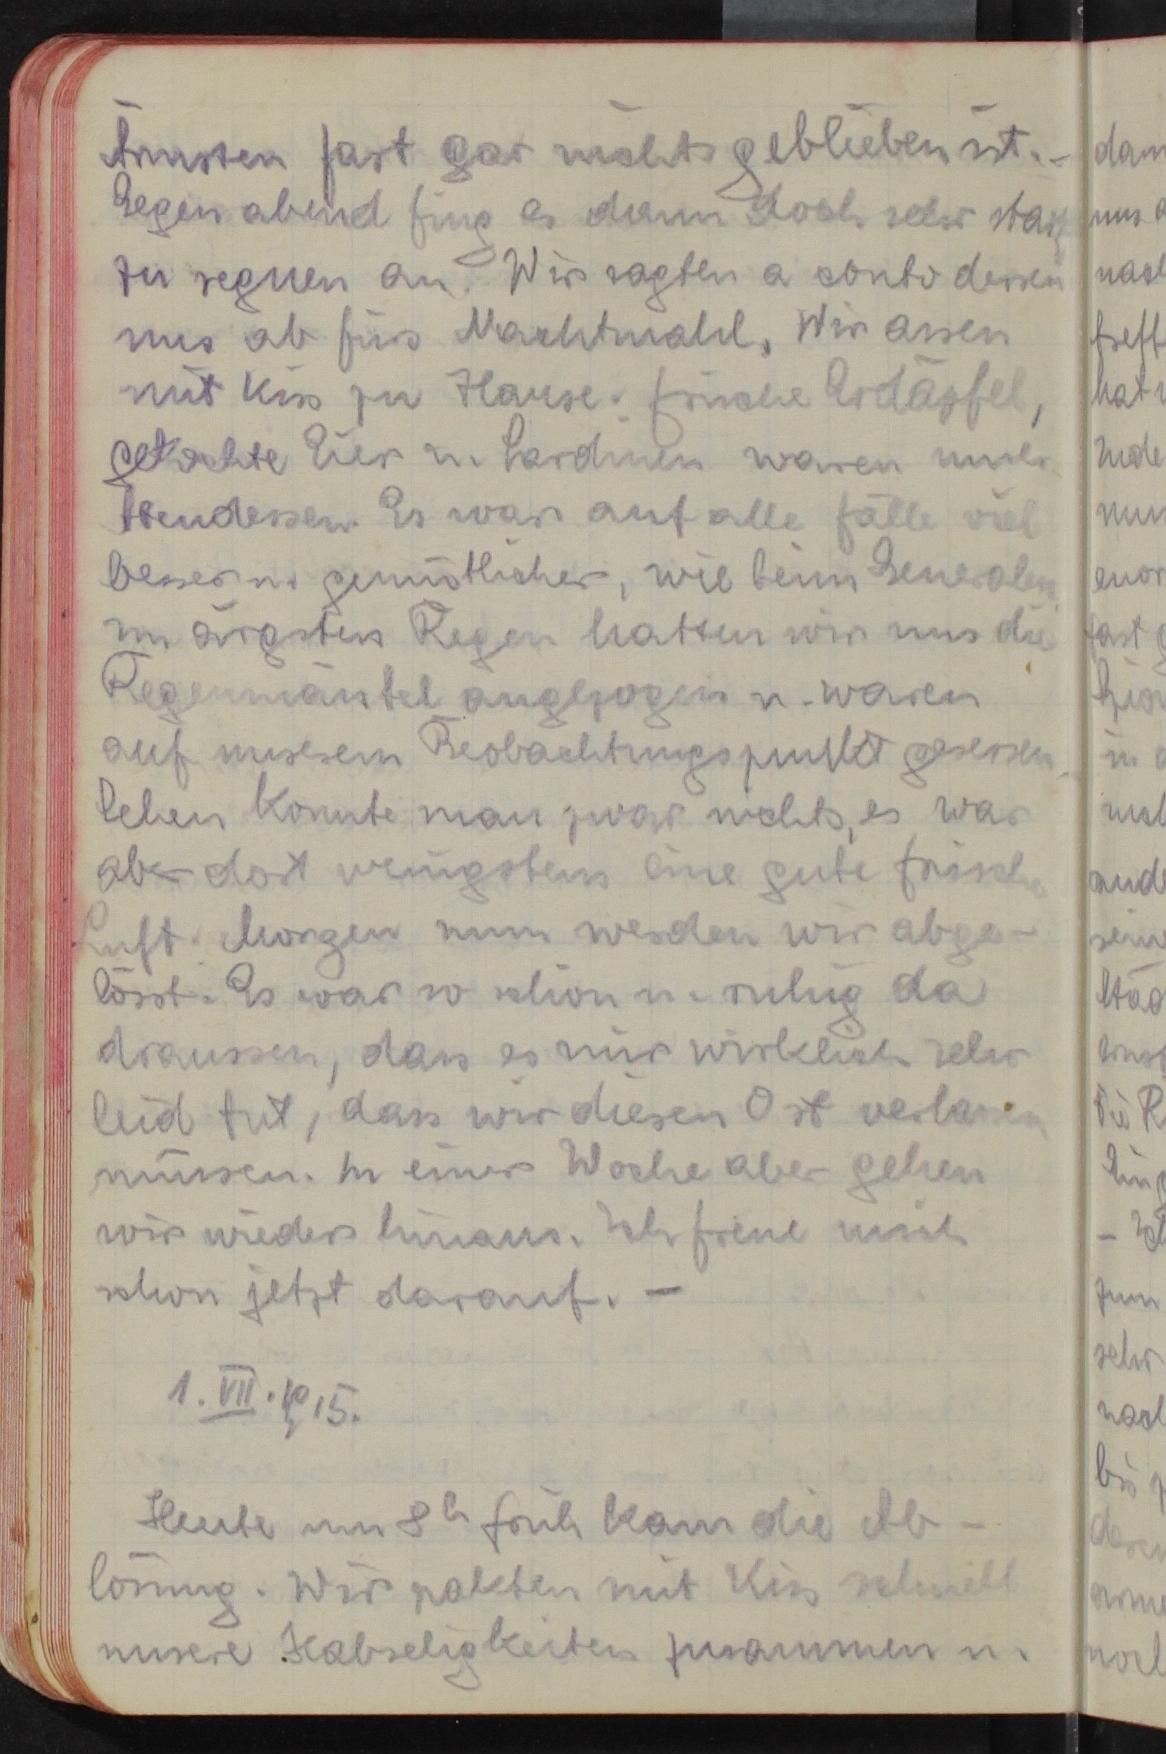 Ärmsten fast gar nichts geblieben ist. -
Gegen abend fing es dann doch sehr stark
zu regnen an. Wir sagten a conto dessen
uns ab fürs Nachtmahl. Wir assen
mit Kiss zu Hause. frische Erdäpfel,
gekochte Eier u. Sardinen waren unser
Abendessen. Es war auf alle fälle viel
besser u. gemütlicher, wie beim Generalen.
im ärgsten Regen hatten wir uns die
Regenmäntel angezogen u. waren
auf unserem Beobachtungspunkt gesessen.
Sehen konnte man zwar nichts, es war
aber dort wenigstens eine gute frische
Luft. Morgen nun werden wir abge-
löst. Es war so schön u. ruhig da
draussen, dass es mir wirklich sehr
leid tut, dass wir diesen Ort verlassen
müssen. In einer Woche aber gehen
wir wieder hinaus. Ich freue mich
schon jetzt darauf. -
1. VII. 1915.
Heute um 8h früh kam die Ab-
lösung. Wir pakten mit Kiss schnell
unsere Habseligkeiten zusammen u.